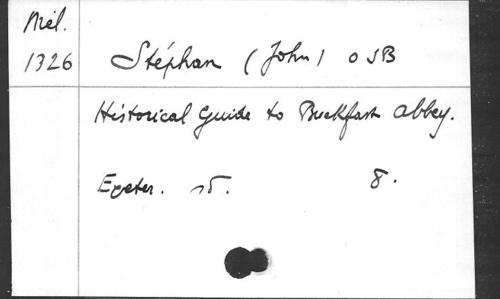 Mél.
1326
Stéphan (John) OSB
Historical Guide to Buckfast Abbey.
Exeter. s.d. 8.